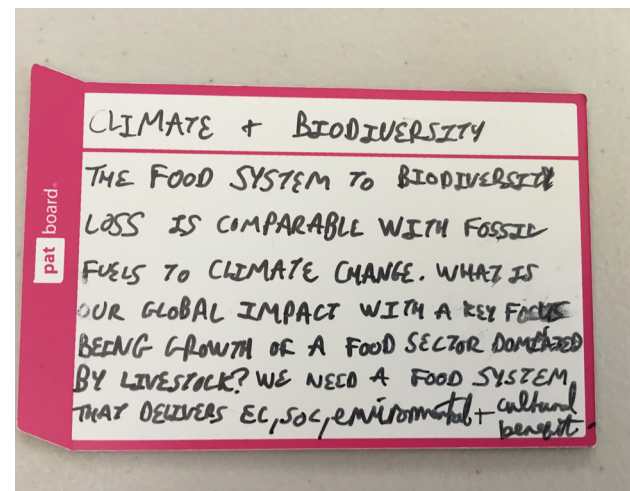 CLIMATE + BIODIVERSITY
THE FOOD SYSTEM TO BIODIVERSITY
LOSS IS COMPARABLE WITH FOSSIL
FUELS TO CLIMATE CHANGE. WHAT IS
OUR GLOBAL IMPACT WITH A KEY FOCUS
BEING GROWTH OF A FOOD SECTOR DOMINATED
BY LIVESTOCK? WE NEED A FOOD SYSTEM
THAT DELIVERS EC, SOC, enviromental + cultural
benefit.
pat board®